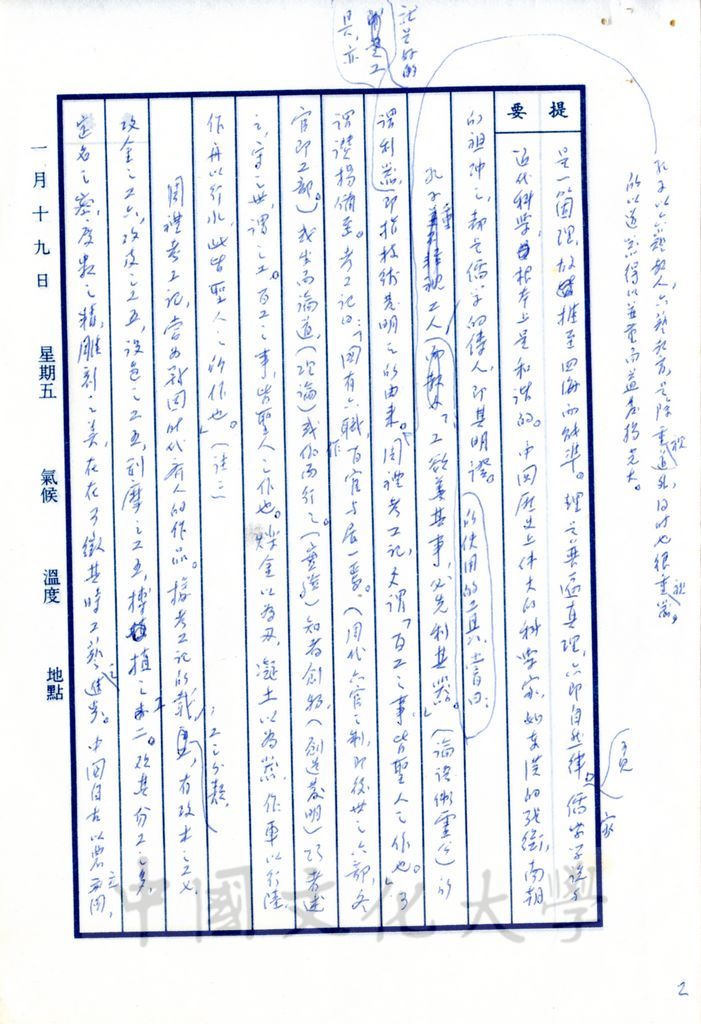 提要
是一以固理,故推至四海而能準。理是普遍真理,亦即自然律,儒家學說與
近代科學,根本上是和諧的。中國歷史上偉大的科學家,如東漢的張衡,南朝
的祖沖之,都是儒學的偉人,即其明證。
孔子重視工人所使用的工具,嘗曰:「工欲善其事,必先利其器。」(論語衛靈公)的
謂利器,即指技術發明之的由来。周禮考工記,夫謂「百工之事,皆聖人之作也。」
謂讚揚備至。考工記曰:「國有六職,百官與居一焉。(周代六官之制,即後世之六部,冬
官即工部。)或坐而論道,(理論)或作而行之。(實踐)知者創物,(創造發明)巧者述
之,守之世,謂之工。百工之事,皆聖人之作也。爍金以為刃,凝土以為器,作車以行陸
作舟以行水,此皆聖人之所作也。」(註二)
周禮考工記,當為戰國時代齊人的作品。據考工記的載,工之分類,有攻木之工七,
攻金之工六,攻皮之工五,設色之工五,刮摩之工五,搏埴之工二。政其分工之多,
定名之密,度數之精,雕刻之美,在在可徵其時工藝之進步。中國自古以農立國,
孔子以六藝教人,六藝教育,是除重視道外,同時也很重視器,
所以道器得以並重而益發揚光大。
就是好的
工
具,亦
一月十九日
星期五
氣候
溫度
地點
中國文化大學
2